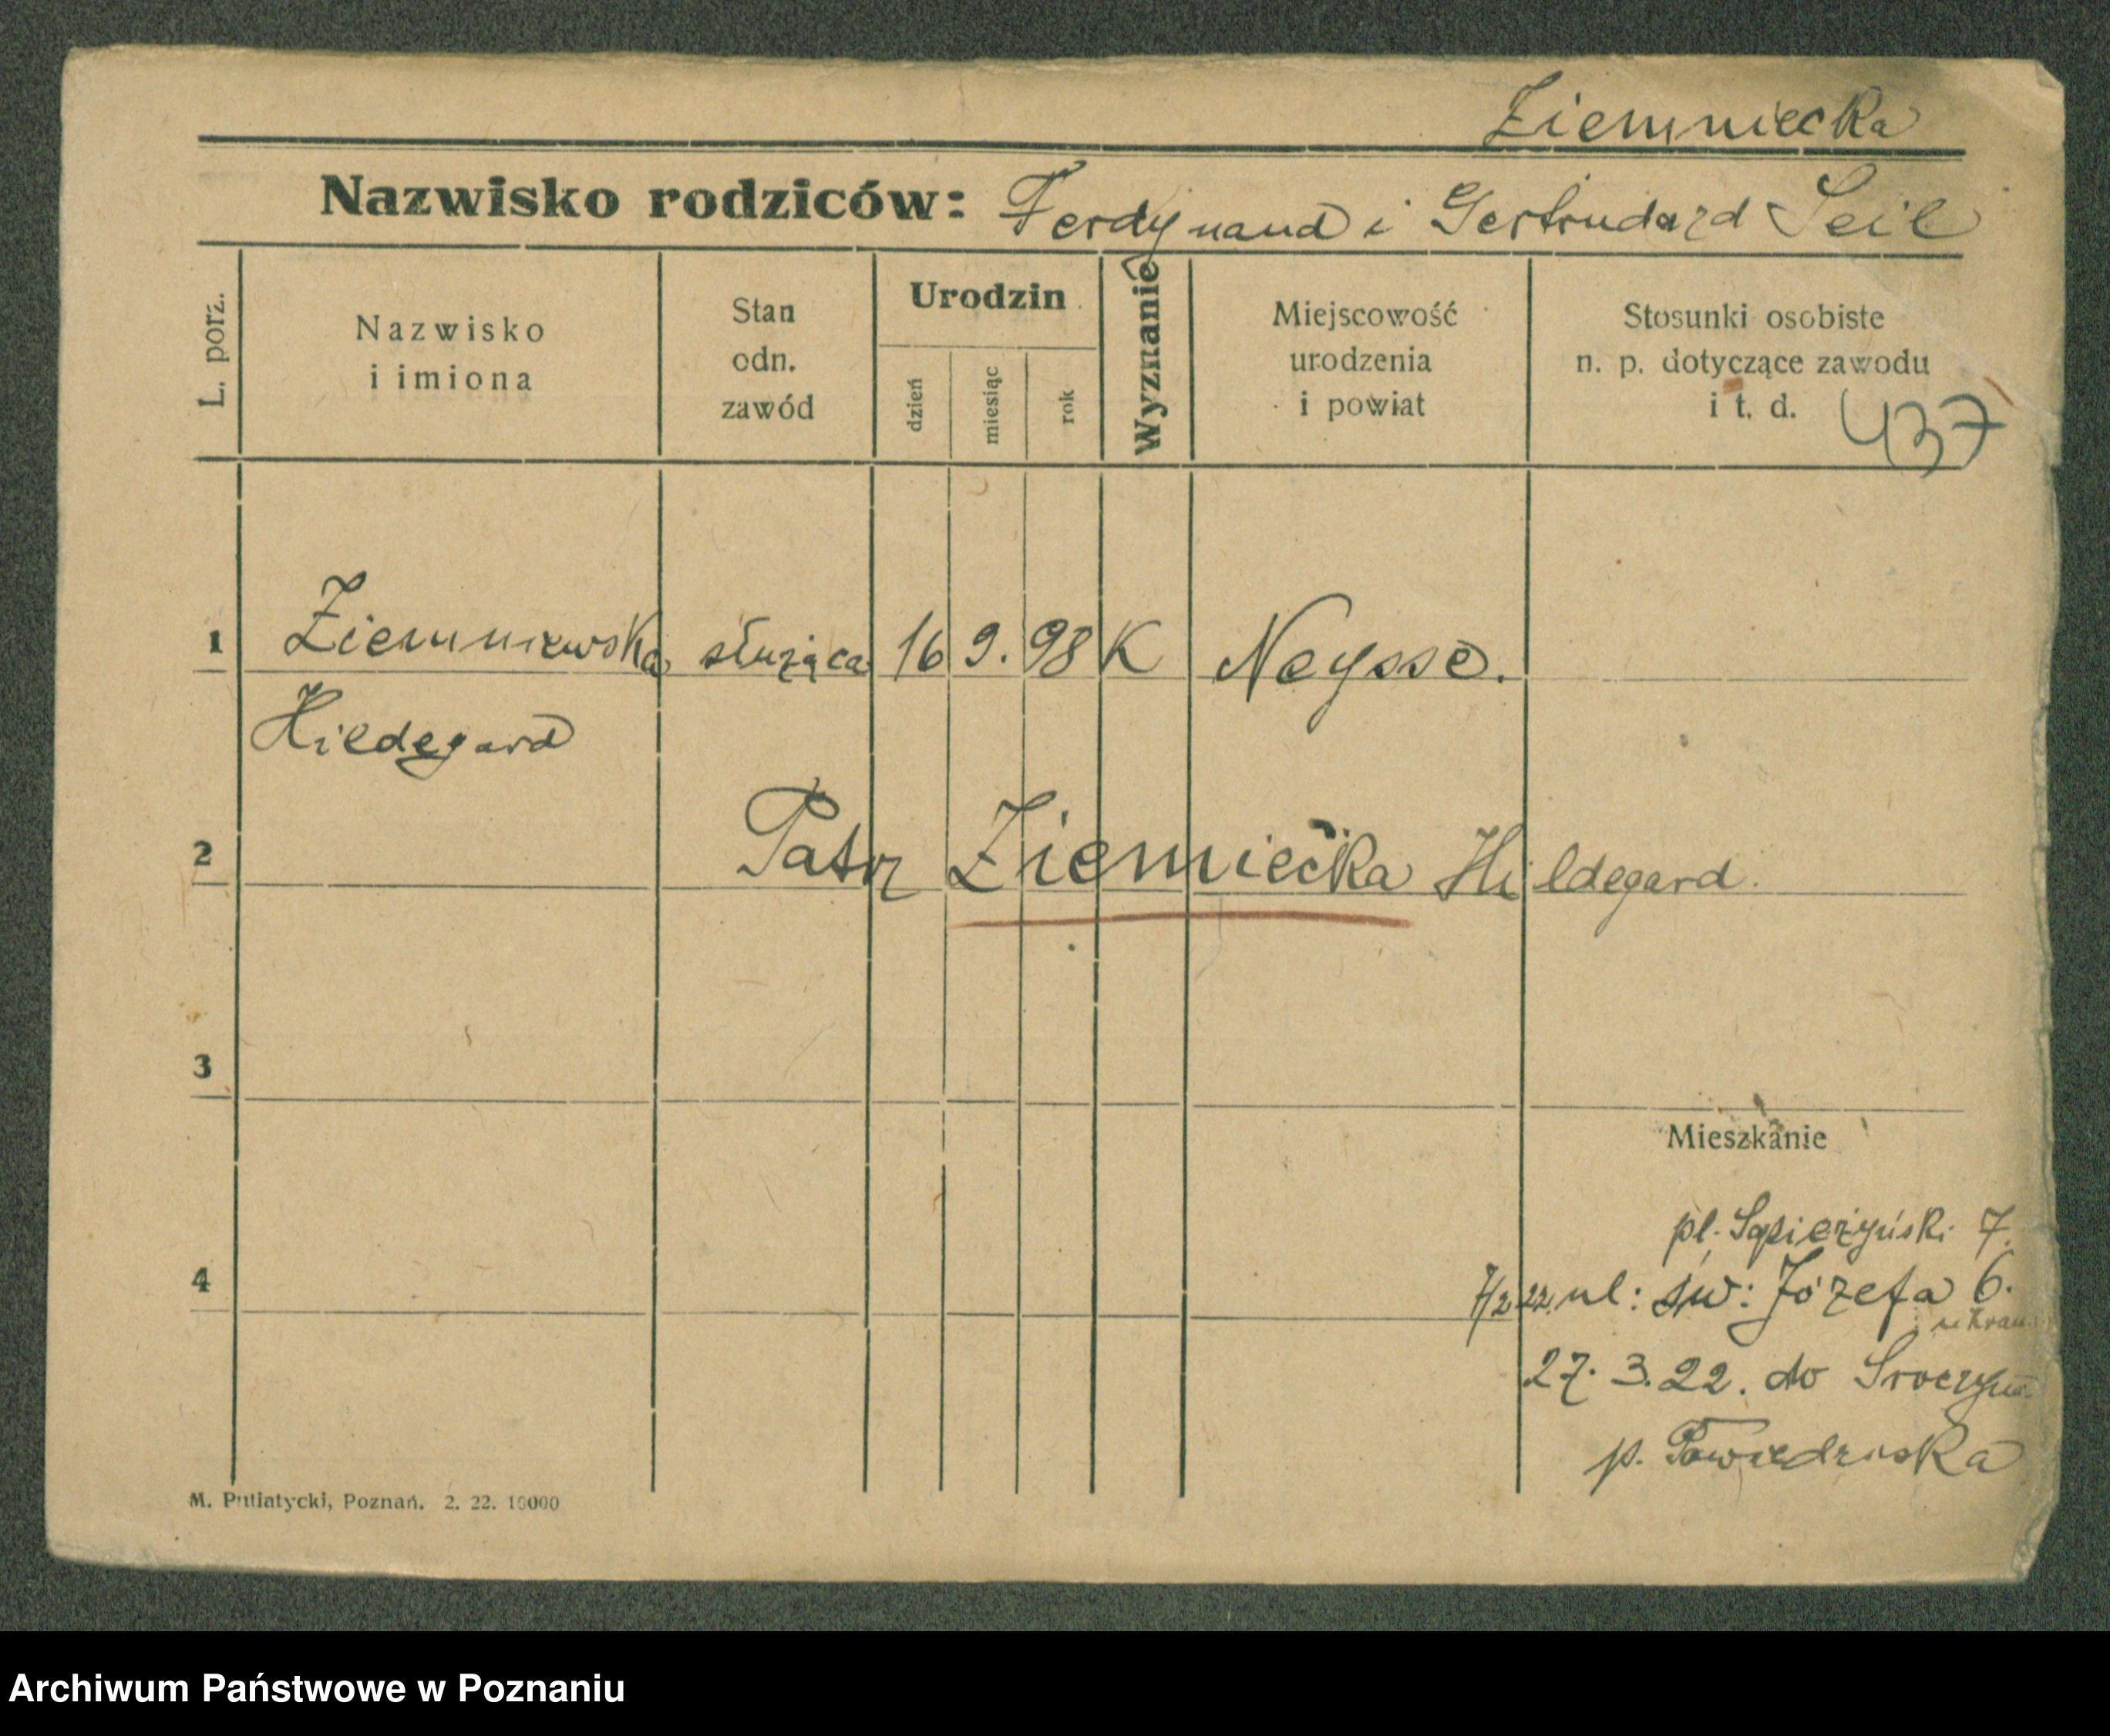 Ziemniecka
Nazwisko rodziców: Ferdynand i Gertruda zd Seil
L. porz.
Nazwisko
i imiona
Stan
odn.
zawód
Urodzin
dzień
miesiąc
rok
Wyznanie
Miejscowość
urodzenia
i powiat
Stosunki osobiste
n. p. dotyczące zawodu
i t. d. 437
1 Ziemniewska służąca 16 9. 98 K Neysse.
Hildegard
2 Patrz Ziemiecka Hildegard.
3
Mieszkanie
pl. Sapieżyński 7.
4 7/2 22. ul: św: Józefa 6.
27. 3. 22. do
p. Powiedziska
M. Putiatycki, Poznań. 2. 22. 10000
Archiwum Państwowe w Poznaniu